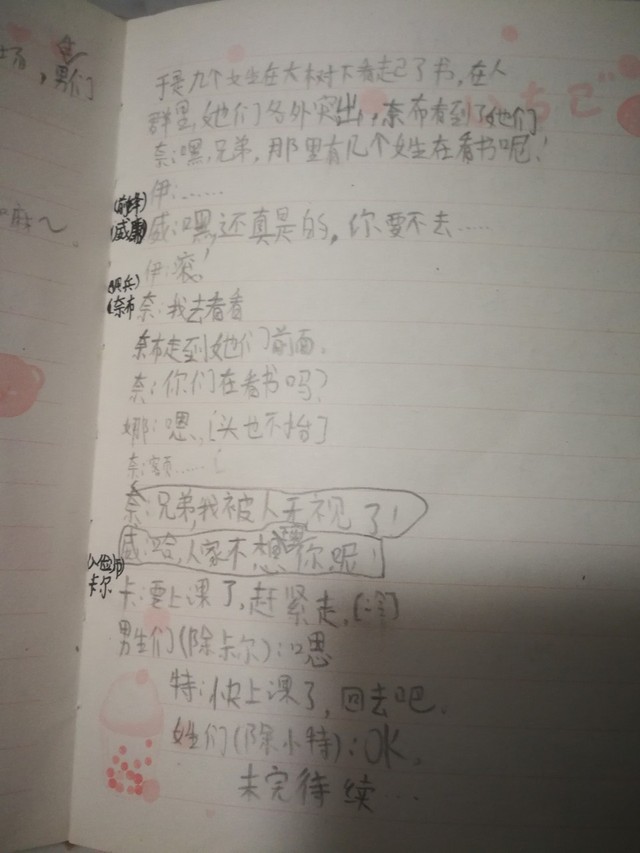 场，男们
于是九个女生在大树下看起了书，在人
群里，她们各外突出，奈布看到了她们
奈：嘿，兄弟，那里有几个女生在看书呢！
伊：……
(前锋)
(威廉) 威：嘿，还真是的，你要不去……
伊：滚！
(佣兵)
(奈布 奈：我去看看
奈布走到她们前面，
奈：你们在看书吗？
娜：嗯，[头也不抬]
奈：额……
奈：兄弟，我被人无视了！
威：哈，人家不想理你呢！
卡尔 卡：要上课了，赶紧走，[冷]
男生们(除卡尔)：嗯
特：快上课了，回去吧，
姓们(除小特)：OK，
未完待续…